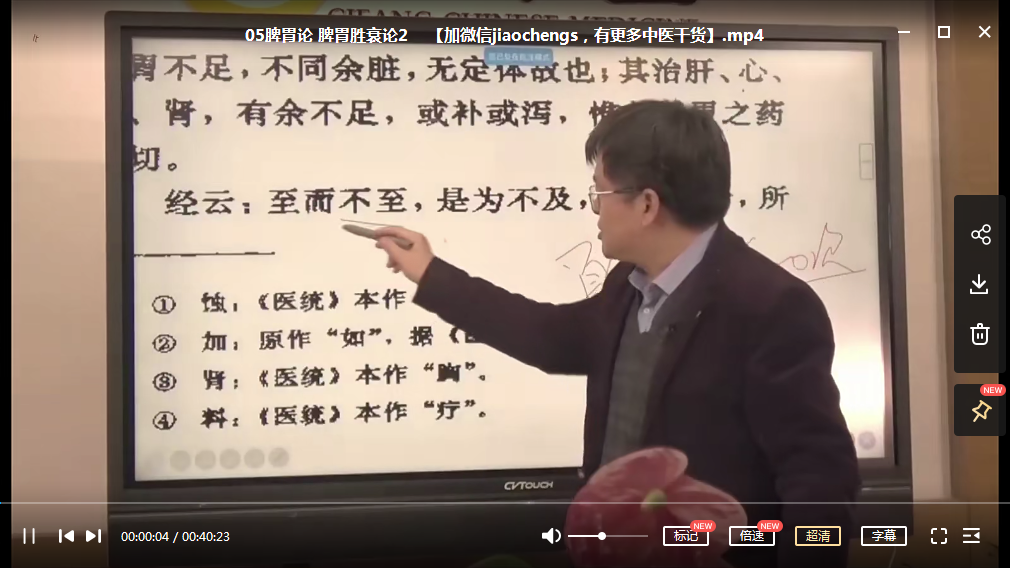 CHANG CHINESE MEDICINE
05脾胃论 脾胃胜衰论2 【加微信jiaochengs，有更多中医干货】.mp4
胃不足，不同余脏，无定体故也；其治肝、心、
、肾，有余不足，或补或泻，惟 胃之药
切。
经云：至而不至，是为不及， ，所
① 蚀：《医统》本作
② 加：原作“如”，据《医
③ 肾：《医统》本作“胸”。
④ 料：《医统》本作“疗”。
CVTOUCH
NEW
00:00:04 / 00:40:23
标记 NEW 倍速 NEW 超清 字幕